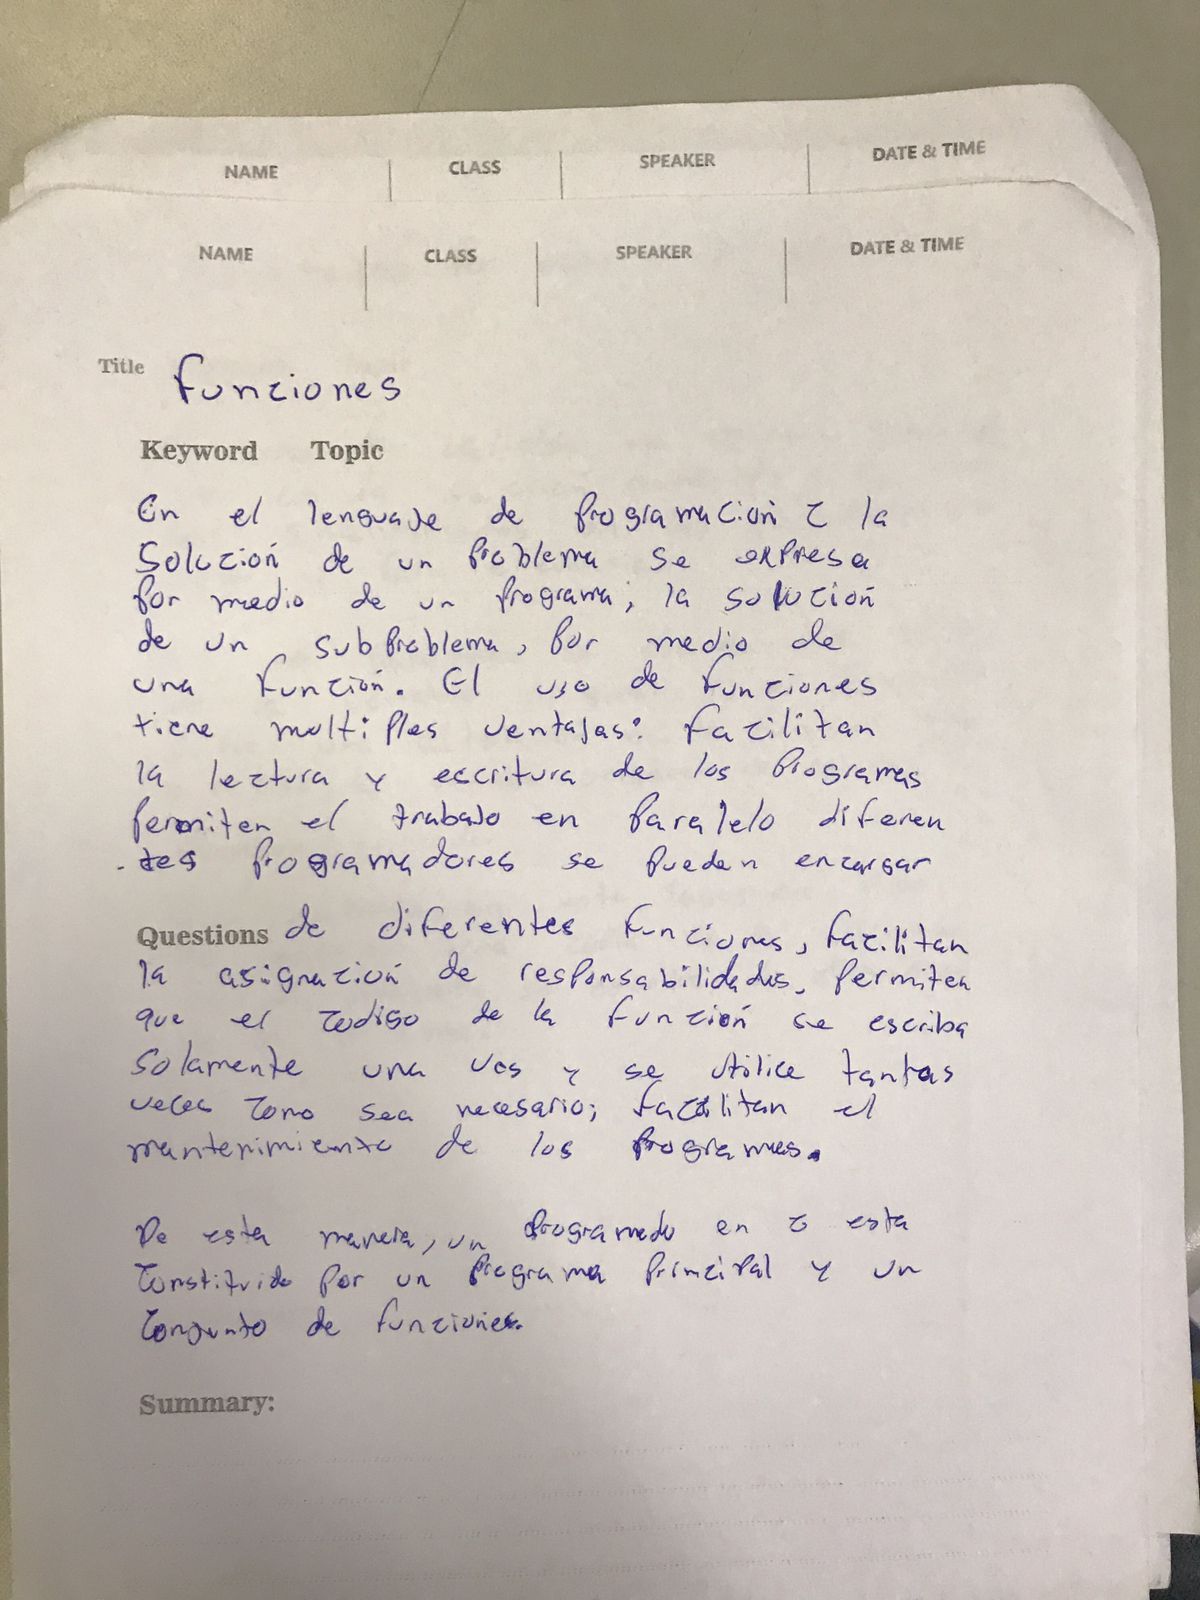 NAME CLASS SPEAKER DATE & TIME
NAME CLASS SPEAKER DATE & TIME
Title Funciones
Keyword Topic
En el lenguaje de programación C la
Solución de un problema se expresa
por medio de un programa; la solución
de un subproblema, por medio de
una función. El uso de funciones
tiene multiples ventajas: facilitan
la lectura y escritura de los programas
permiten el trabajo en paralelo diferen
-tes programadores se pueden encargar
Questions de diferentes funciones, facilitan
la asignación de responsabilidades, permiten
que el codigo de la función se escriba
solamente una ves y se utilice tantas
veces como sea necesario; facilitan el
mantenimiento de los programas.
De esta manera, un programado en C esta
constituido por un programa principal y un
conjunto de funciones.
Summary: